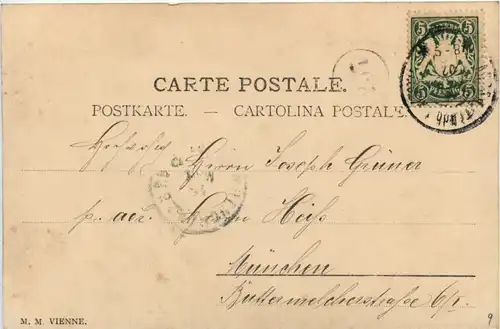 5 5
CARTE POSTALE.
POSTKARTE. — CARTOLINA POSTALE.
Herrn Joseph Grüner
p. adr. Herrn Heiß
München
Buttermelcherstraße 6/
M. M. VIENNE.
9